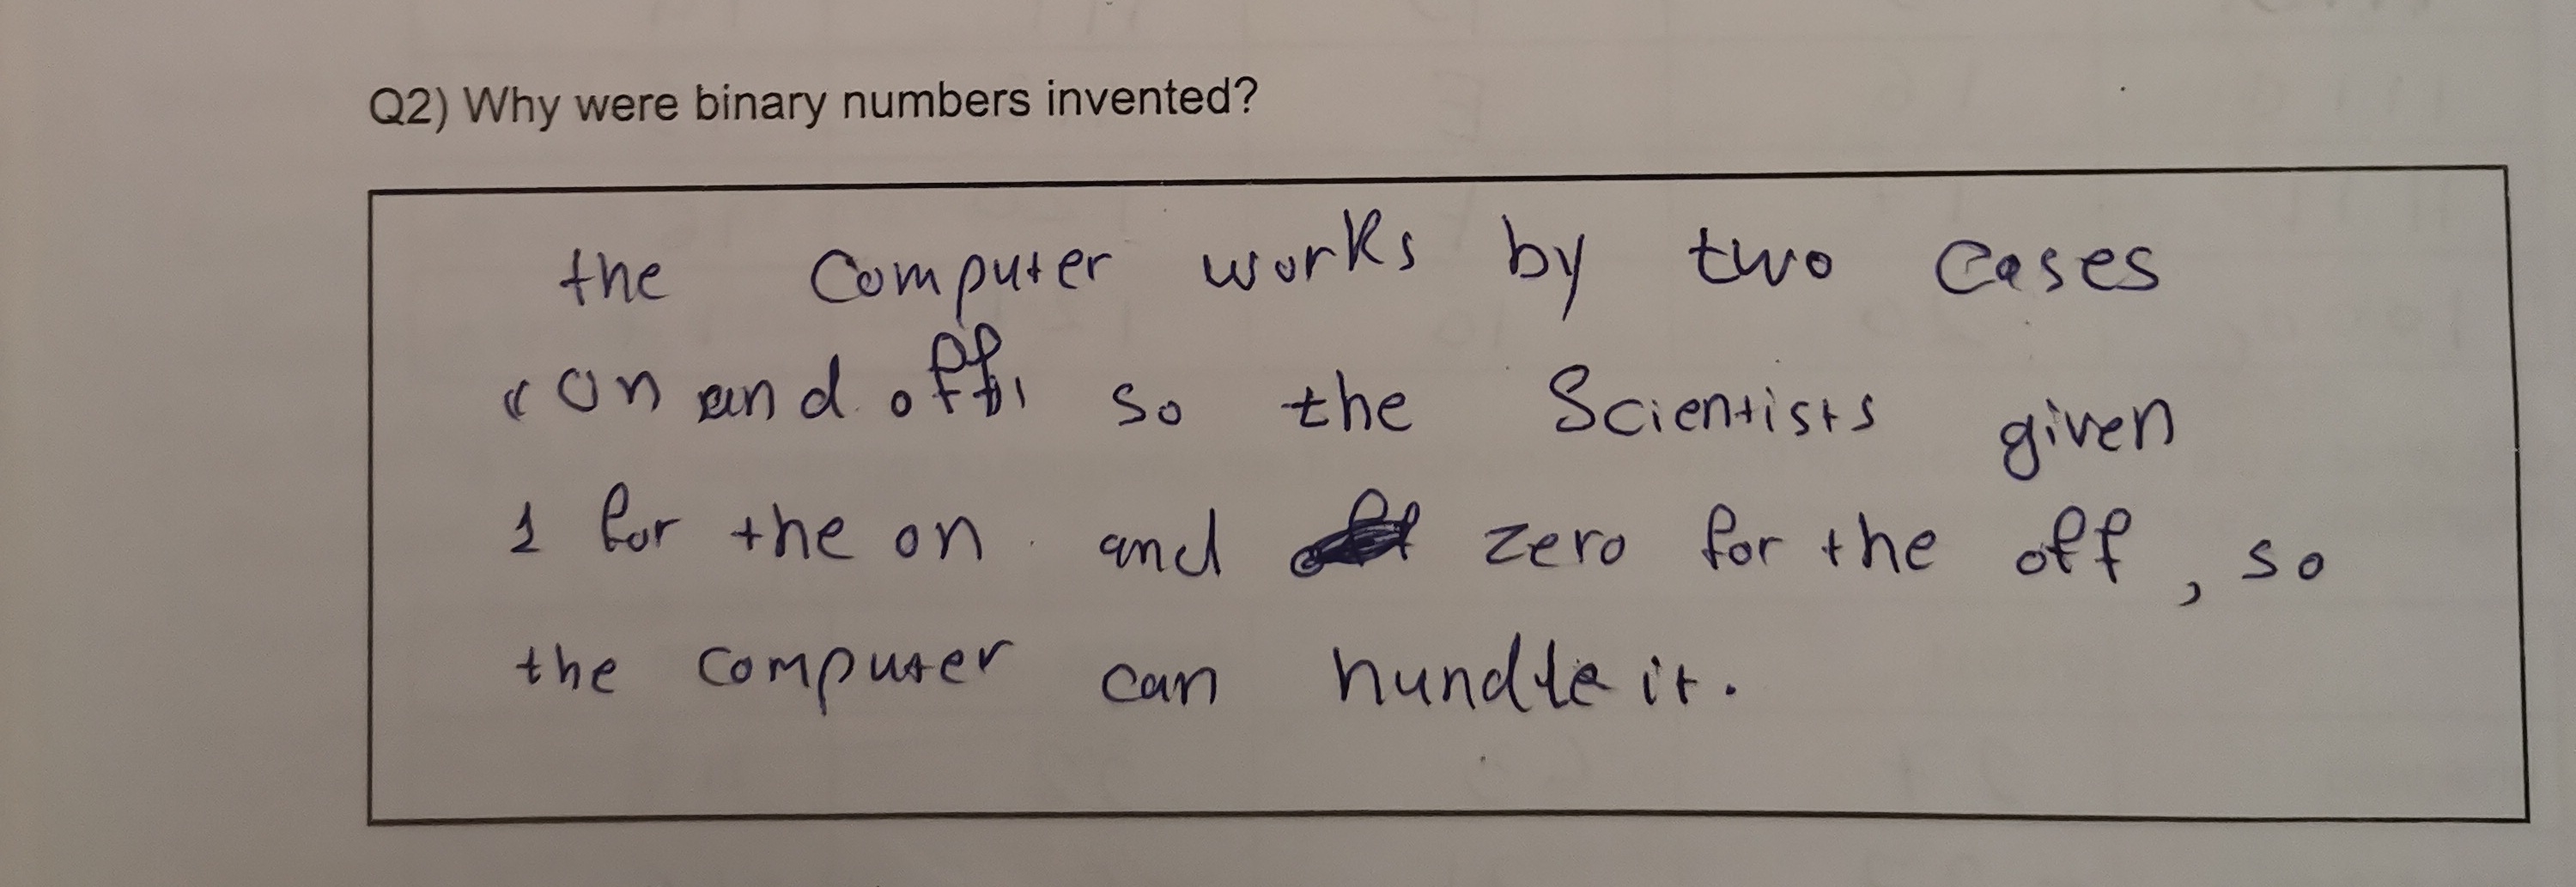 Q2) Why were binary numbers invented?
the computer works by two cases
"on and off" so the Scientists given
1 for the on and zero for the off, so
the computer can hundle it.